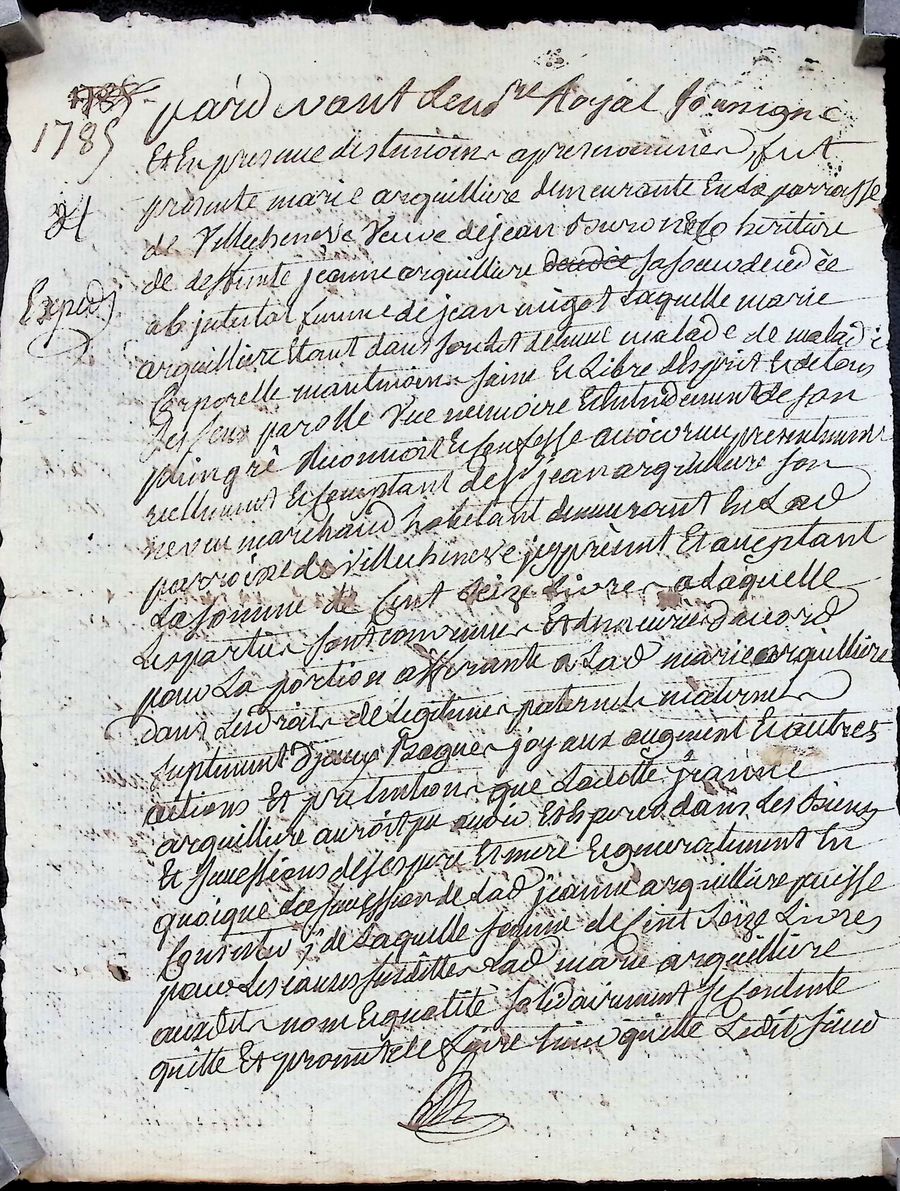 1785
1785
Exped
pardevant le no.re Royal soussigne
Et En presence des temoins apres nommes, fut
presente marie arquilliere demeurante En La parroisse
de Villechenesve Veuve de jean Buron Et heritiere
de deffunte jeanne arquilliere decedée sa soeur decedée
ab jntestat femme de jean migot Laquelle marie
arquilliere Etant dans son Lit detenue malade de maladie
Corporelle neantmoins saine Et Libre desprit Et de tous
ses sens parolle Vue memoire Et Entendement de son
plein gré Reconnoit Et Confesse avoir reçu presentement
reellement Et Comptant de Sr jean arquilliere son
neveu marchand habitant demeurant En Lad
parroisse de Villechenesve jcy present Et acceptant
La somme de Cent seize Livres a Laquelle
Les parties sont convenues Et demeurées d'accord
pour La portion afferante a Lad marie arquilliere
dans Les droits de Legitimes paternels maternels
suplement d'jceux Bagues joyaux augment Et autres
actions Et pretentions que Laditte jeanne
arquilliere auroit pu avoir Et Esperer dans Les Biens
Et successions de ses pere Et mere Et generalement En
quoique La succession de Lad jeanne arquilliere puisse
Consister, de Laquelle somme de Cent seize Livres
pour Les causes susdittes Lad marie arquilliere
auxdits nom Et qualité solidairement se contente
quitte Et promet de faire tenir quitte Ledit Sieur